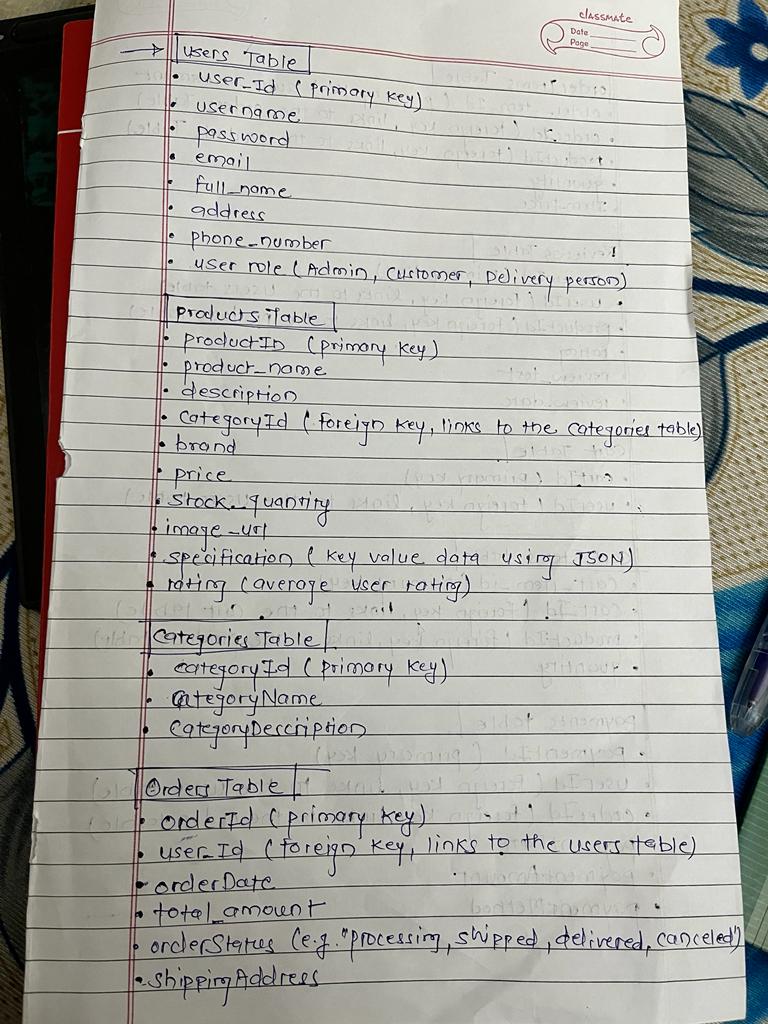 classmate
Date
Page
→ Users Table
• user_Id (primary key)
• username
• password
• email
• full_name
• address
• phone_number
• user role (Admin, Customer, Delivery person)
Products Table
• productID (primary key)
• product_name
• description
• categoryId (foreign key, links to the categories table)
• brand
• price
• stock_quantity
• image_url
• specification (key value data using JSON)
• rating (average user rating)
Categories Table
• categoryId (primary key)
• categoryName
• categoryDescription
Orders Table
• orderId (primary key)
• user_Id (foreign key, links to the users table)
• orderDate
• total_amount
• orderStatus (e.g. "processing, shipped, delivered, canceled")
• shippingAddress